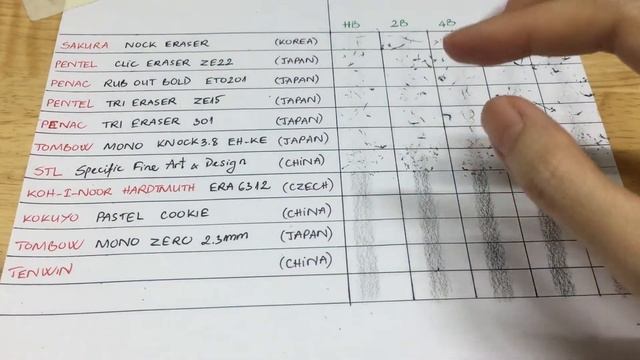 HB 2B 4B
SAKURA NOCK ERASER (KOREA)
PENTEL CLIC ERASER ZE22 (JAPAN)
PENAC RUB OUT BOLD ET0201 (JAPAN)
PENTEL TRI ERASER ZE15 (JAPAN)
PENAC TRI ERASER 301 (JAPAN)
TOMBOW MONO KNOCK 3.8 EH-KE (JAPAN)
STL Specific Fine Art & Design (CHINA)
KOH-I-NOOR HARDTMUTH ERA 6312 (CZECH)
KOKUYO PASTEL COOKIE (CHINA)
TOMBOW MONO ZERO 2.3mm (JAPAN)
TENWIN (CHINA)